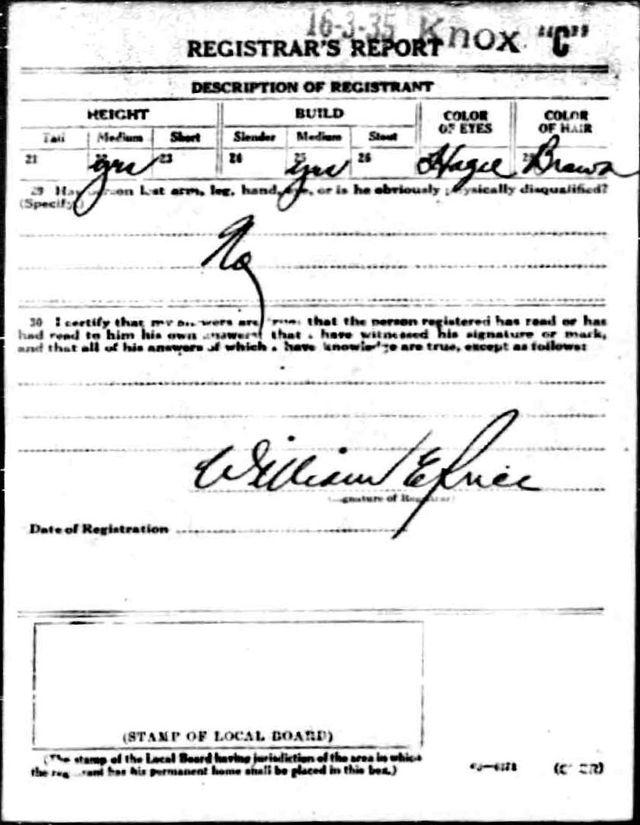 16-3-35 Knox "C"
REGISTRAR'S REPORT
DESCRIPTION OF REGISTRANT
HEIGHT BUILD COLOR OF EYES COLOR OF HAIR
Tall Medium Short Slender Medium Stout
21 yes 23 24 25 yes 26 Hazel Brown
29 Has person lost arm, leg, hand, eye, or is he obviously physically disqualified?
(Specify.)
No
30 I certify that my answers are true; that the person registered has read or has
had read to him his own answers; that I have witnessed his signature or mark,
and that all of his answers of which I have knowledge are true, except as follows:
William E
(Signature of Registrar)
Date of Registration
(STAMP OF LOCAL BOARD)
(The stamp of the Local Board having jurisdiction of the area in which
the registrant has his permanent home shall be placed in this box.)